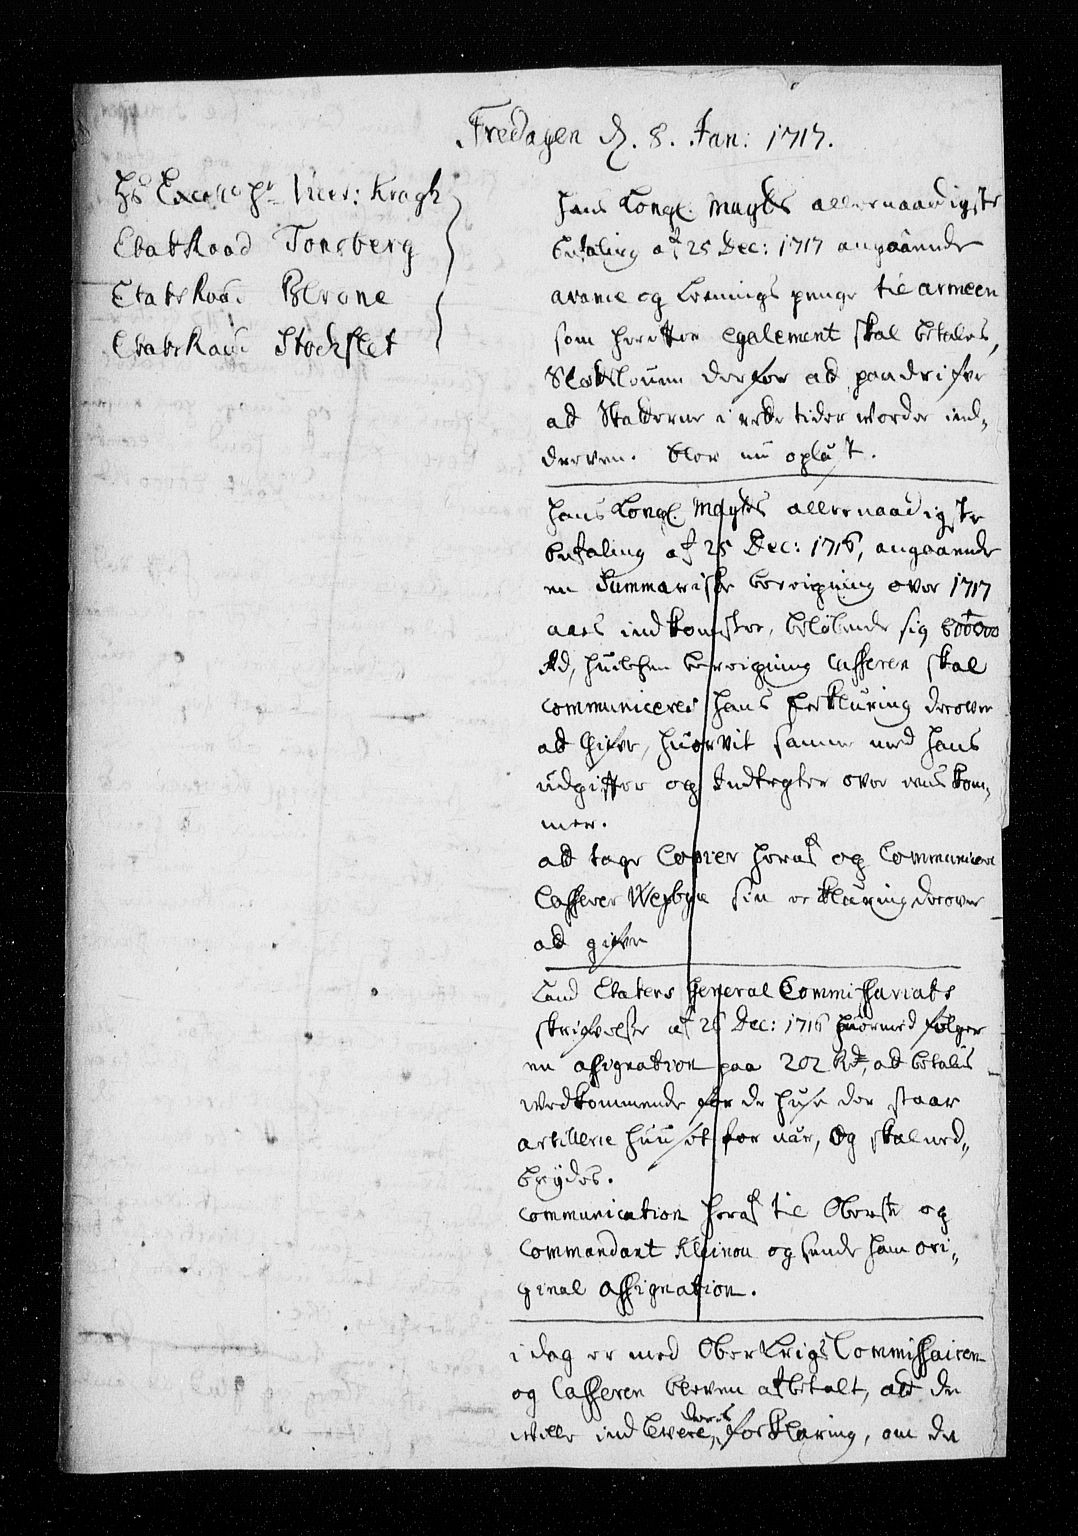 Fredagen d. 8. Jan: 1717.
Hs Excell: Hr Vice: Kragh
EtatsRaad Tonsberg
EtatsRaad Blixne
EtatsRaad Stockflet
Hans Kongl. Mayts allernaadigste
befaling af 25 Dec: 1717 angaaende
avance og Lønings penge til armeen
som herefter egalement skal betales,
Slotsloven derfor at paadrifve
at Skatterne i rette tider worder ind-
dreven. blev nu oplæst.
Hans Kongl. Mayts allernaadigste
befaling af 25 Dec: 1716, angaaende
en Summariske beregning over 1717
aars indkomster, beløbende sig 800000
Rd, huilchen beregning Casseren skal
communiceres hans Forklaring derover
at gifve, huorvit samme med hans
udgifter og Indtegter over eens kom-
mer.
at tage Copier heraf og Communicere
Casserer Wesbye sin erklæring derover
at gifve
Land Etatens General Commissariats
skrifvelse af 26 Dec: 1716 huormed følger
en assignation paa 202 Rd, at betalis
wedkommende for de huse der staar
artillerie huuset for nær, og skal ned-
brydes.
communication heraf til Oberste og
Commandant Kleinou og sende ham ori-
ginal assignation.
i dag er med Ober Krigs Commissairen
og Casseren bleven afbetalt, at de
wille indlevere deris forklaring, om de